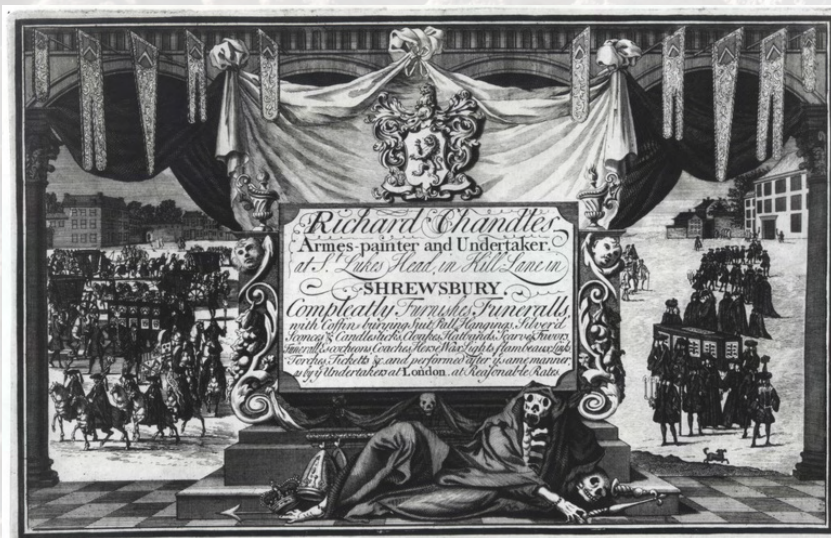 Richard Chandles
Armes-painter and Undertaker,
at S.t Lukes Head, in Hill Lane in
SHREWSBURY
Compleatly Furnishes Funeralls,
with Coffin, burying Suit, Pall, Hangings, Silver'd
Sconces & Candlesticks, Cloakes, Hatbands, Scarves, Favors,
Funerall Escocheons, Coaches, Herse, Wax Lights, flambeaux, Links,
Torches, Ticketts &c. and performed after ye same manner,
as by ye Undertakers at London, at Reasonable Rates